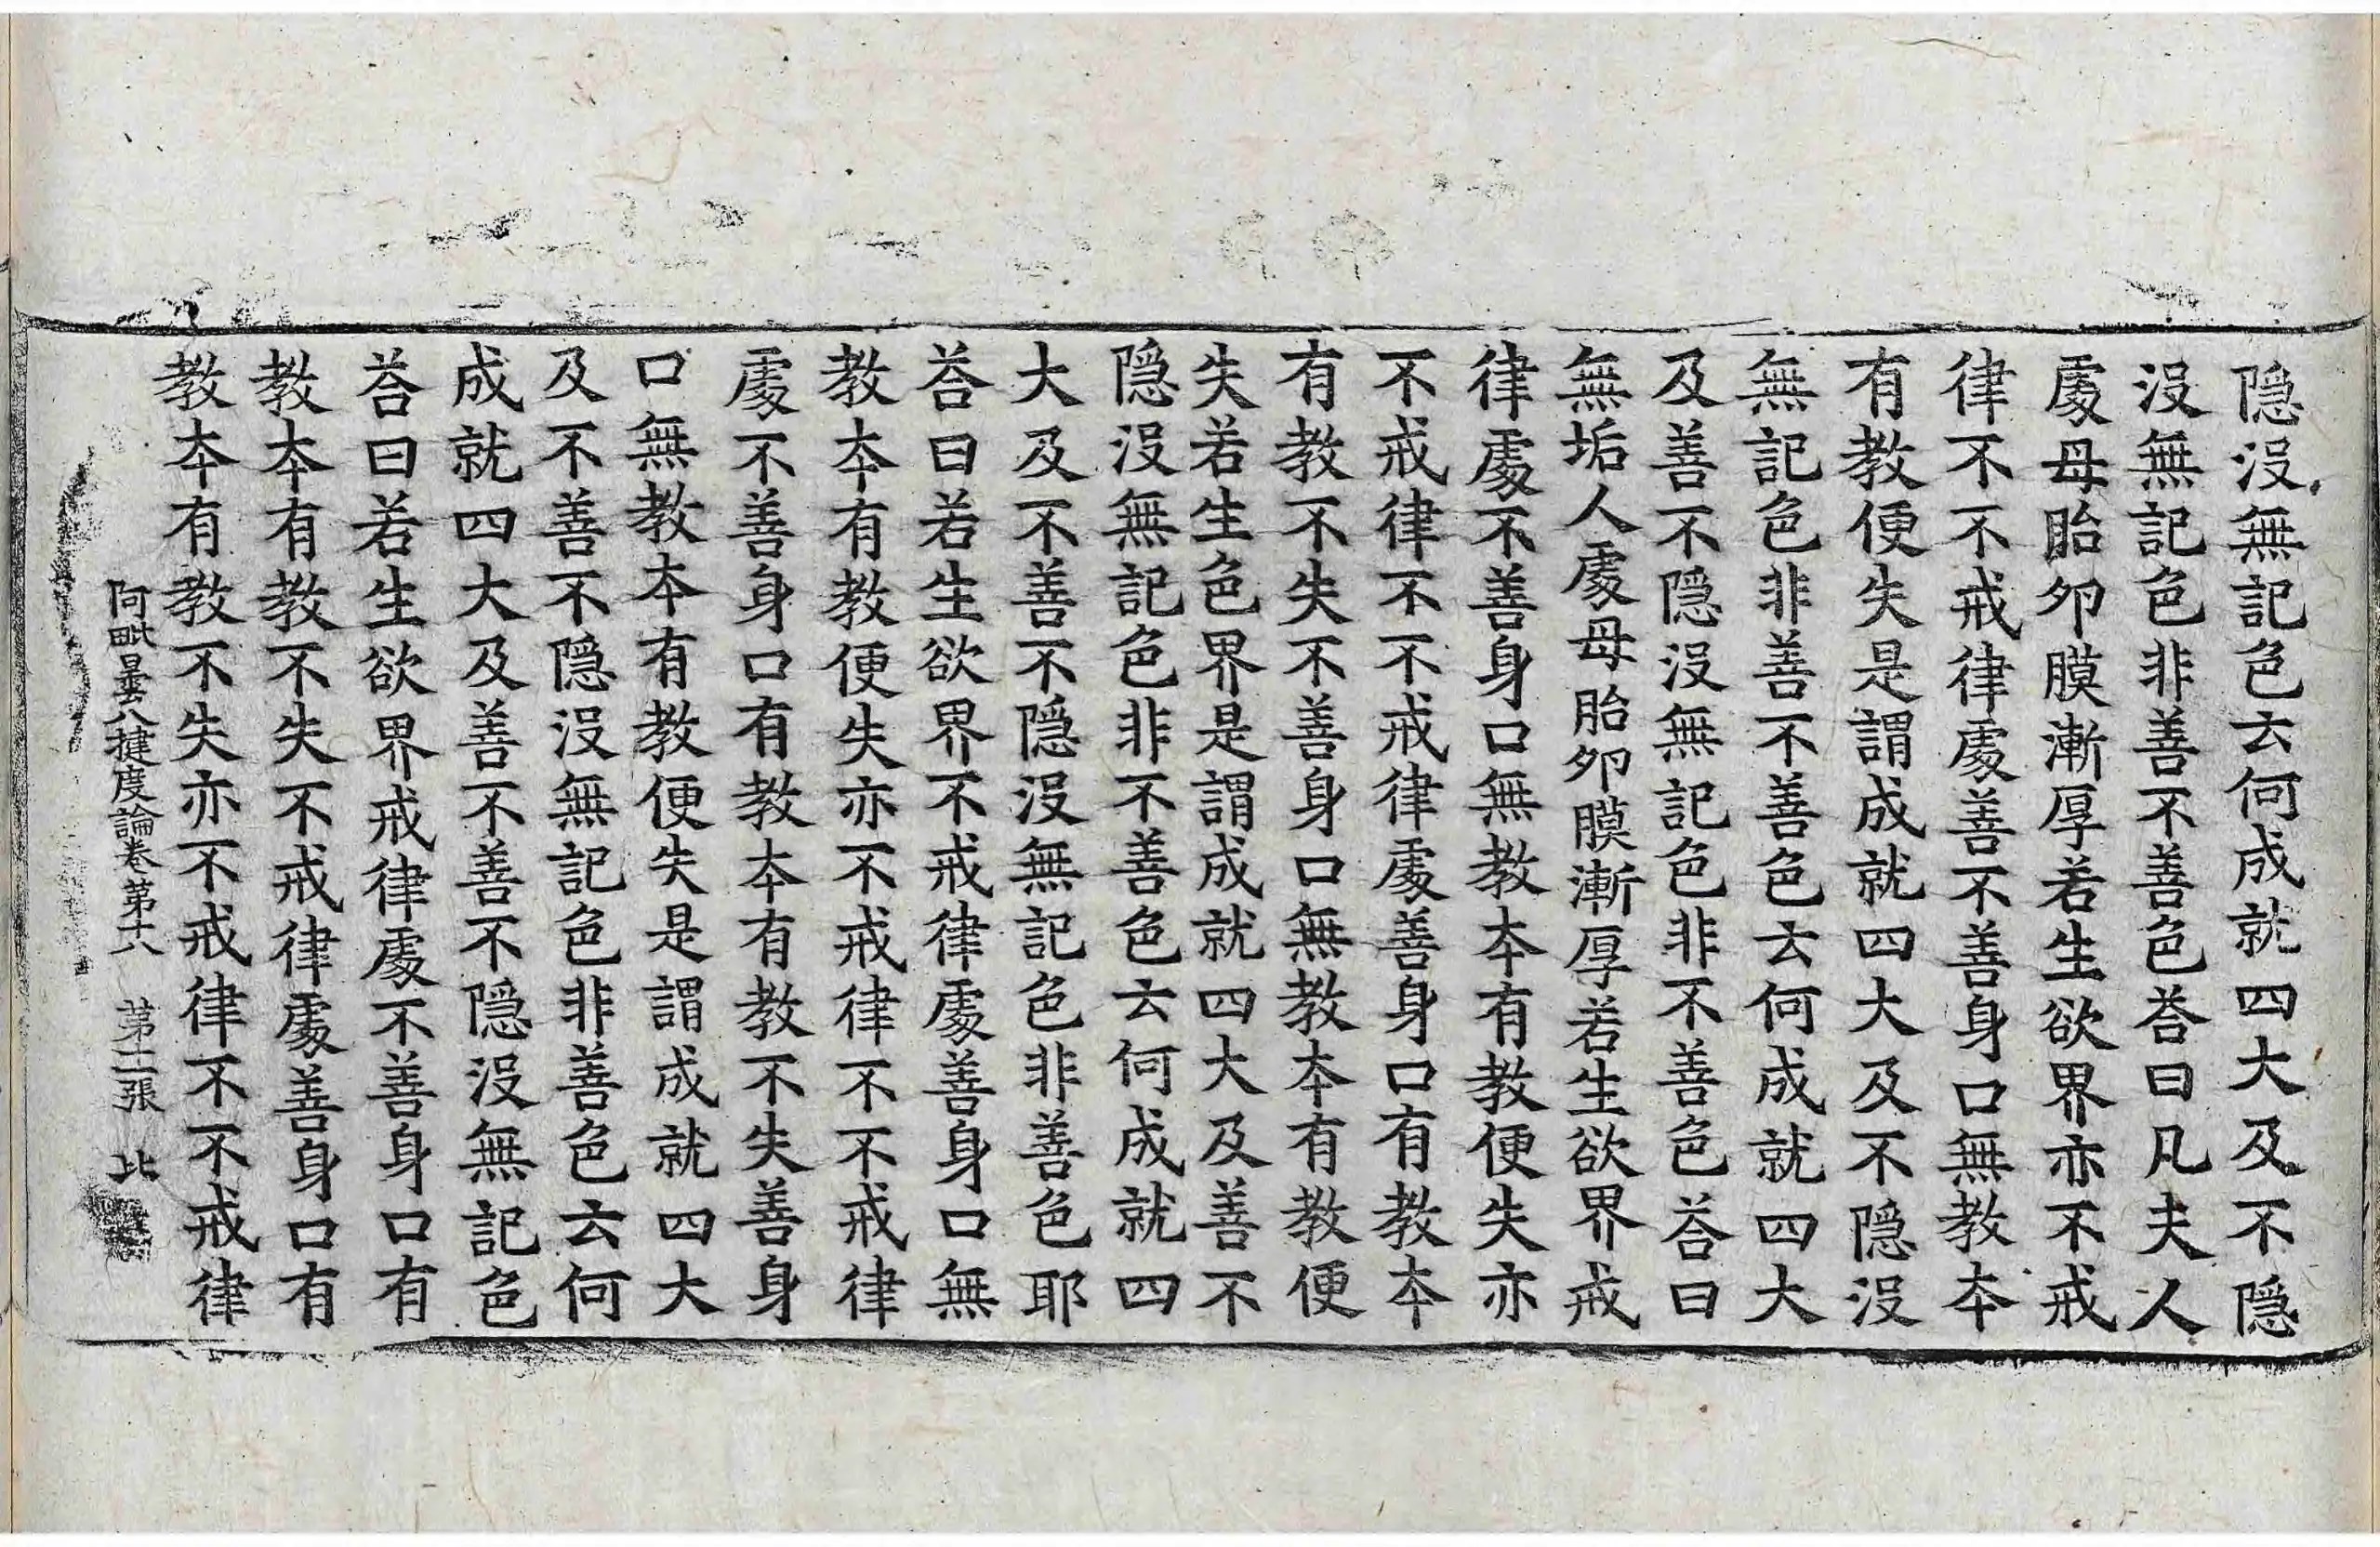 隠沒無記色云何成就四大及不隠
沒無記色非善不善色荅曰凡夫人
處母胎卵膜漸厚若生欲界亦不戒
律不不戒律處善不善身口無教夲
有教便失是謂成就四大及不隠沒
無記色非善不善色云何成就四大
及善不隠沒無記色非不善色荅曰
無垢人處母胎卵膜漸厚若生欲界戒
律處不善身口無教夲有教便失亦
不戒律不不戒律處善身口有教夲
有教不失不善身口無教夲有教便
失若生色界是謂成就四大及善不
隠沒無記色非不善色云何成就四
大及不善不隠沒無記色非善色耶
荅曰若生欲界不戒律處善身口無
教夲有教便失亦不戒律不不戒律
處不善身口有教夲有教不失善身
口無教夲有教便失是謂成就四大
及不善不隠沒無記色非善色云何
成就四大及善不善不隠沒無記色
荅曰若生欲界戒律處不善身口有
教夲有教不失不戒律處善身口有
教夲有教不失亦不戒律不不戒律
阿毗曇八揵度論卷第十八　第十二張　北